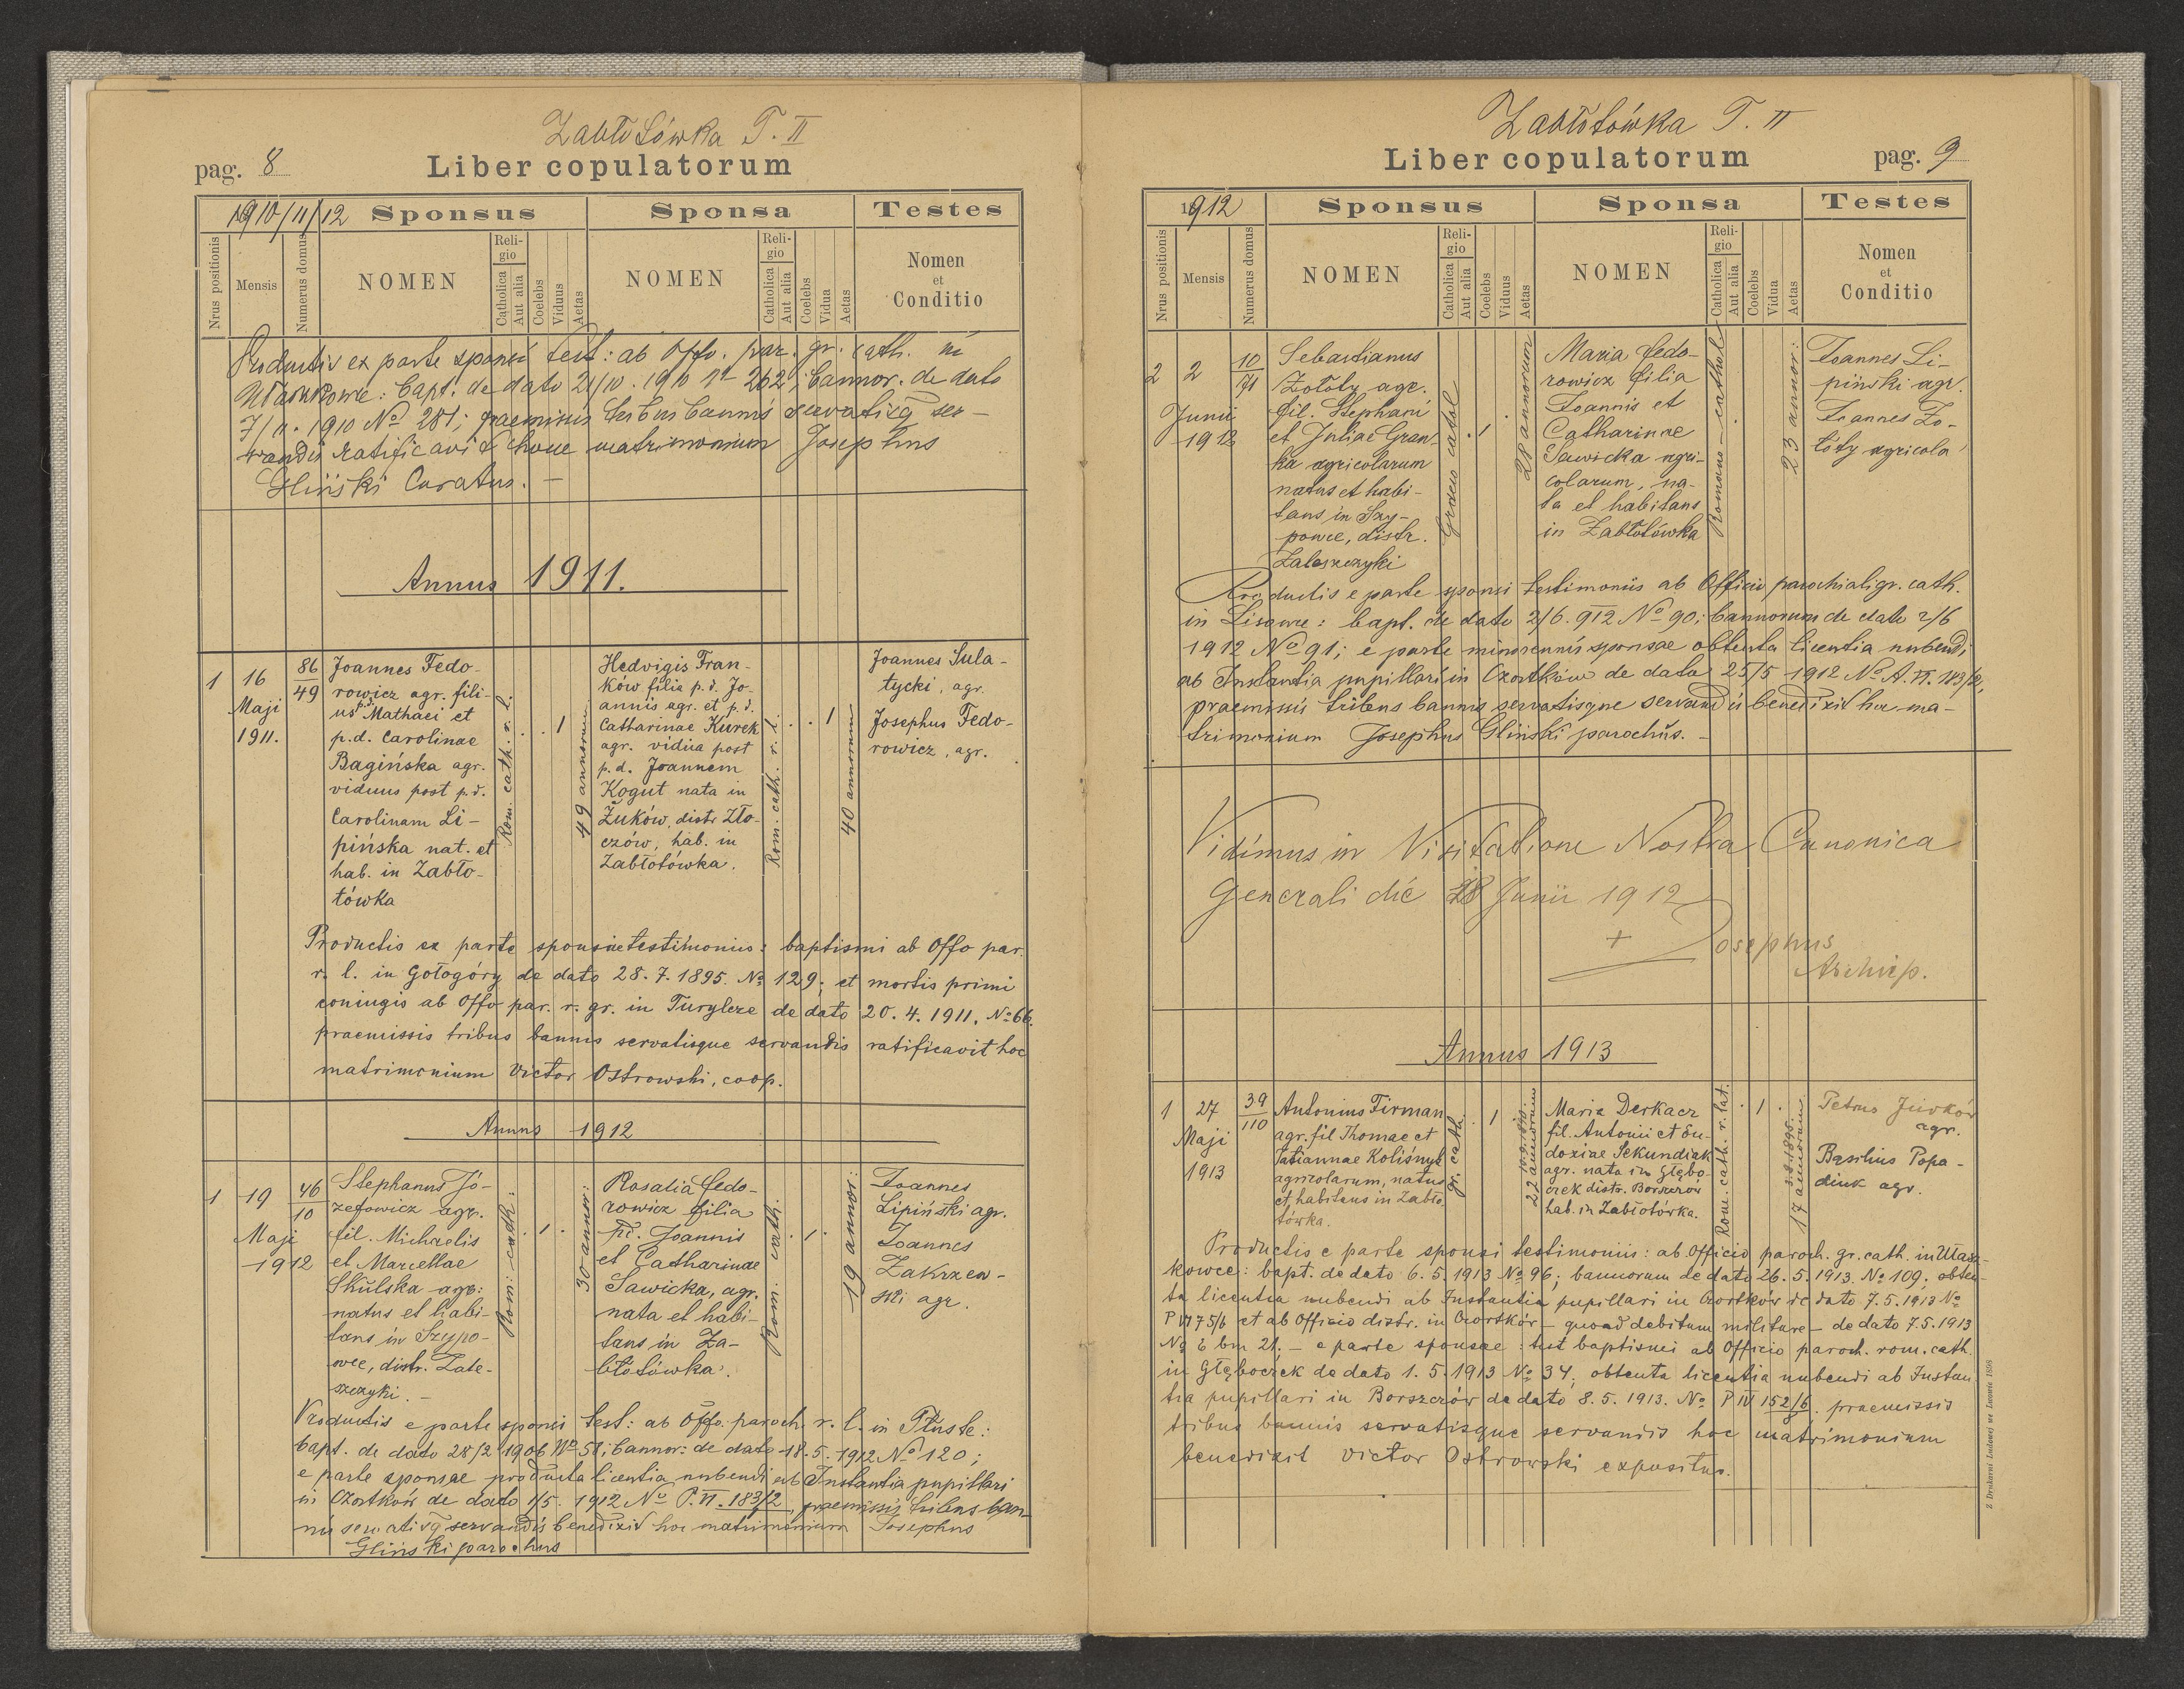 Zabłotówka T. II
pag. 8
Liber copulatorum
1910/11/12
Sponsus
Sponsa
Testes
Nrus positionis
Mensis
Numerus domus
NOMEN
Religio
Catholica
Aut alia
Coelebs
Viduus
Aetas
NOMEN
Religio
Catholica
Aut alia
Coelebs
Vidua
Aetas
Nomen
et
Conditio
Productis ex parte sponsi test: ab Offo. par. gr. cath. in
Ułaszkowce: bapt. de dato 21/10. 1910 No 262; bannor. de dato
7/11. 1910 No 281; praemissis tribus bannis servatisq ser-
vandis ratificavit hocce matrimonium Josephus
Gliński Curatus. —
Annus 1911.
1
16
Maji
1911.
86
49
Joannes Fedo-
rowicz agr. fili-
us p.d. Mathaei et
p.d. Carolinae
Bagińska agr.
viduus post p.d.
Carolinam Li-
pińska nat. et
hab. in Zabło-
tówka
Rom. cath. r. l.
. 1
49 annorum
Hedvigis Fran-
ków filia p.d. Jo-
annis agr. et p.d.
Catharinae Kurek
agr. vidua post
p.d. Joannem
Kogut nata in
Żuków, distr Zło-
czów, hab. in
Zabłotówka.
Rom. cath. r. l.
. . 1
40 annorum
Joannes Sula-
tycki, agr.
Josephus Fedo-
rowicz, agr.
Productis ex parte sponsae testimoniis: baptismi ab Offo par.
r. l. in Gołogóry de dato 28. 7. 1895. No 129; et mortis primi
coniugis ab Offo par. r. gr. in Turylcze de dato 20. 4. 1911. No 66.
praemissis tribus bannis servatisque servandis ratificavit hoc
matrimonium Victor Ostrowski, coop.
Annus 1912
1
19
Maji
1912
46
10
Stephanus Jó-
zefowicz agr.
fil. Michaelis
et Marcellae
Skulska agr:
natus et habi-
tans in Szypo-
wce, distr. Zale-
szczyki. —
Rom: cath:
. 1 .
30 annor:
Rosalia Fedo-
rowicz filia
pd. Joannis
et Catharinae
Sawicka, agr.
nata et habi-
tans in Za-
błotówka.
Rom. cath.
. 1 .
19 annor:
Joannes
Lipiński agr.
Joannes
Zakrzew-
ski agr.
Productis e parte sponsi test: ab Offo. paroch. r. l. in Tłuste:
bapt. de dato 28/2 1906 No 51; bannor: de dato 18. 5. 1912 No 120;
e parte sponsae producta licentia nubendi ab Instantia pupillari
in Czortków de dato 1/5. 1912 No P. VI. 183/2, praemissis tribus ban-
nis servatisq servandis benedixit hoc matrimonium Josephus
Gliński parochus
Zabłotówka T. II
Liber copulatorum
pag. 9
1912
Sponsus
Sponsa
Testes
Nrus positionis
Mensis
Numerus domus
NOMEN
Religio
Catholica
Aut alia
Coelebs
Viduus
Aetas
NOMEN
Religio
Catholica
Aut alia
Coelebs
Vidua
Aetas
Nomen
et
Conditio
2
2
Junii
1912
10
71
Sebastianus
Zołoty agr.
fil. Stephani
et Juliae Gran-
ka agricolarum
natus et habi-
tans in Szy-
powce, distr.
Zaleszczyki
Graeco cathol
. 1 .
28 annorum
Maria Fedo-
rowicz filia
Joannis et
Catharinae
Sawicka agri-
colarum, na-
ta et habitans
in Zabłotówka
Romano-cathol
23 annor:
Joannes Li-
piński agr.
Joannes Zo-
łoty agricola
Productis e parte sponsi testimoniis ab Officio parochiali gr. cath.
in Lisowce: bapt. de dato 2/6. 912 No 90; bannorum de dato 2/6
1912 No 91; e parte minorennis sponsae obtenta licentia nubendi
ab Instantia pupillari in Czortków de dato 25/5 1912 No A. VI. 183/2,
praemissis tribus bannis servatisque servandis benedixit hoc ma-
trimonium Josephus Gliński parochus. —
Vidimus in Visitatione Nostra Canonica
Generali die 28 Junii 1912
+ Josephus
Archiep.
Annus 1913
1
27
Maji
1913
39
110
Antonius Firman
agr. fil Thomae et
Tatiannae Koliśnyk
agricolarum, natus
et habitans in Zabło-
tówka.
gr. cath.
. 1
22 annorum
Maria Derkacz
fil. Antonii et Eu-
doxiae Sekundiak
agr. nata in Głębo-
czek distr. Borszczów
hab. in Zabłotówka.
Rom. cath. r. lat.
. 1 .
17 annorum
Petrus Jurków
agr.
Basilius Popa-
diuk agr.
Productis e parte sponsi testimoniis: ab Officio paroch. gr. cath. in Ułasz-
kowce: bapt. de dato 6. 5. 1913 No 96; bannorum de dato 26. 5. 1913. No 109; obten-
ta licentia nubendi ab Instantia pupillari in Czortków de dato 7. 5. 1913 No
P VI 75/6 et ab Officio distr. in Czortków — quoad debitum militare — de dato 7. 5. 1913
No 6 bm 21. — e parte sponsae: test baptismi ab Officio paroch. rom. cath.
in Głęboczek de dato 1. 5. 1913 No 34, obtenta licentia nubendi ab Instan-
tia pupillari in Borszczów de dato 8. 5. 1913. No P IV 152/6. praemissis
tribus bannis servatisque servandis hoc matrimonium
benedixit Victor Ostrowski expositus.
Z Drukarni Ludowej we Lwowie 1898